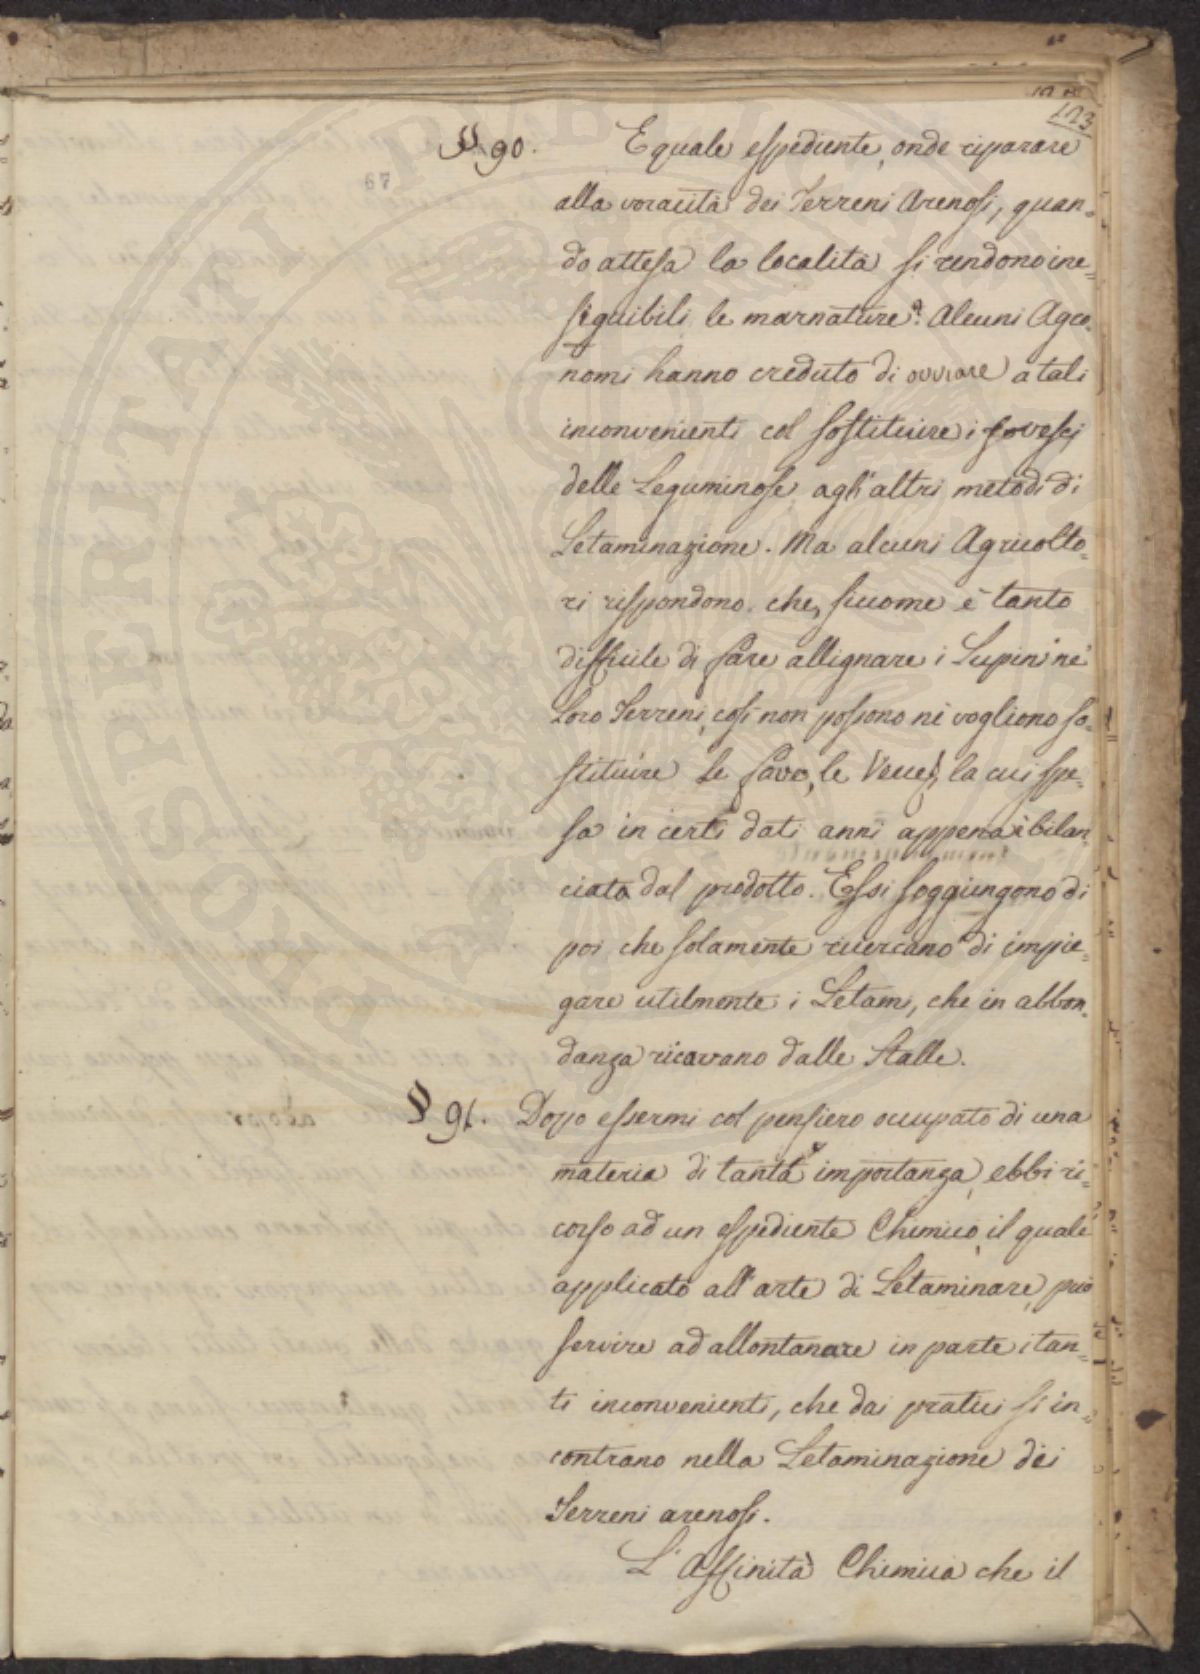 123
§ 90. E quale espediente, onde riparare
67
alla voracità dei Terreni Arenosi, quan=
do attesa la località si rendono ine=
seguibili le marnature? Alcuni Agro=
nomi hanno creduto di ovviare a tali
inconvenienti col sostituire i sovesci
delle Leguminose agli altri metodi di
Letaminazione. Ma alcuni Agricolto=
ri rispondono che, siccome è tanto
difficile di fare allignare i Lupini ne'
Loro Terreni, così non possono nè vogliono so=
stituire le fave, le Vecce, la cui spe=
sa in certi dati anni appena è bilan=
ciata dal prodotto. Essi soggiungono di
poi che solamente ricercano di impie=
gare utilmente i Letami, che in abbon=
danza ricavano dalle Stalle.
§ 91. Dopo essermi col pensiero occupato di una
materia di tanta importanza, ebbi ri=
corso ad un espediente Chimico, il quale
applicato all'arte di Letaminare, può
servire ad allontanare in parte i tan=
ti inconvenienti, che dai pratici si in=
contrano nella Letaminazione dei
Terreni arenosi.
L'Affinità Chimica che il
PROSPERITATI PUBLICAE